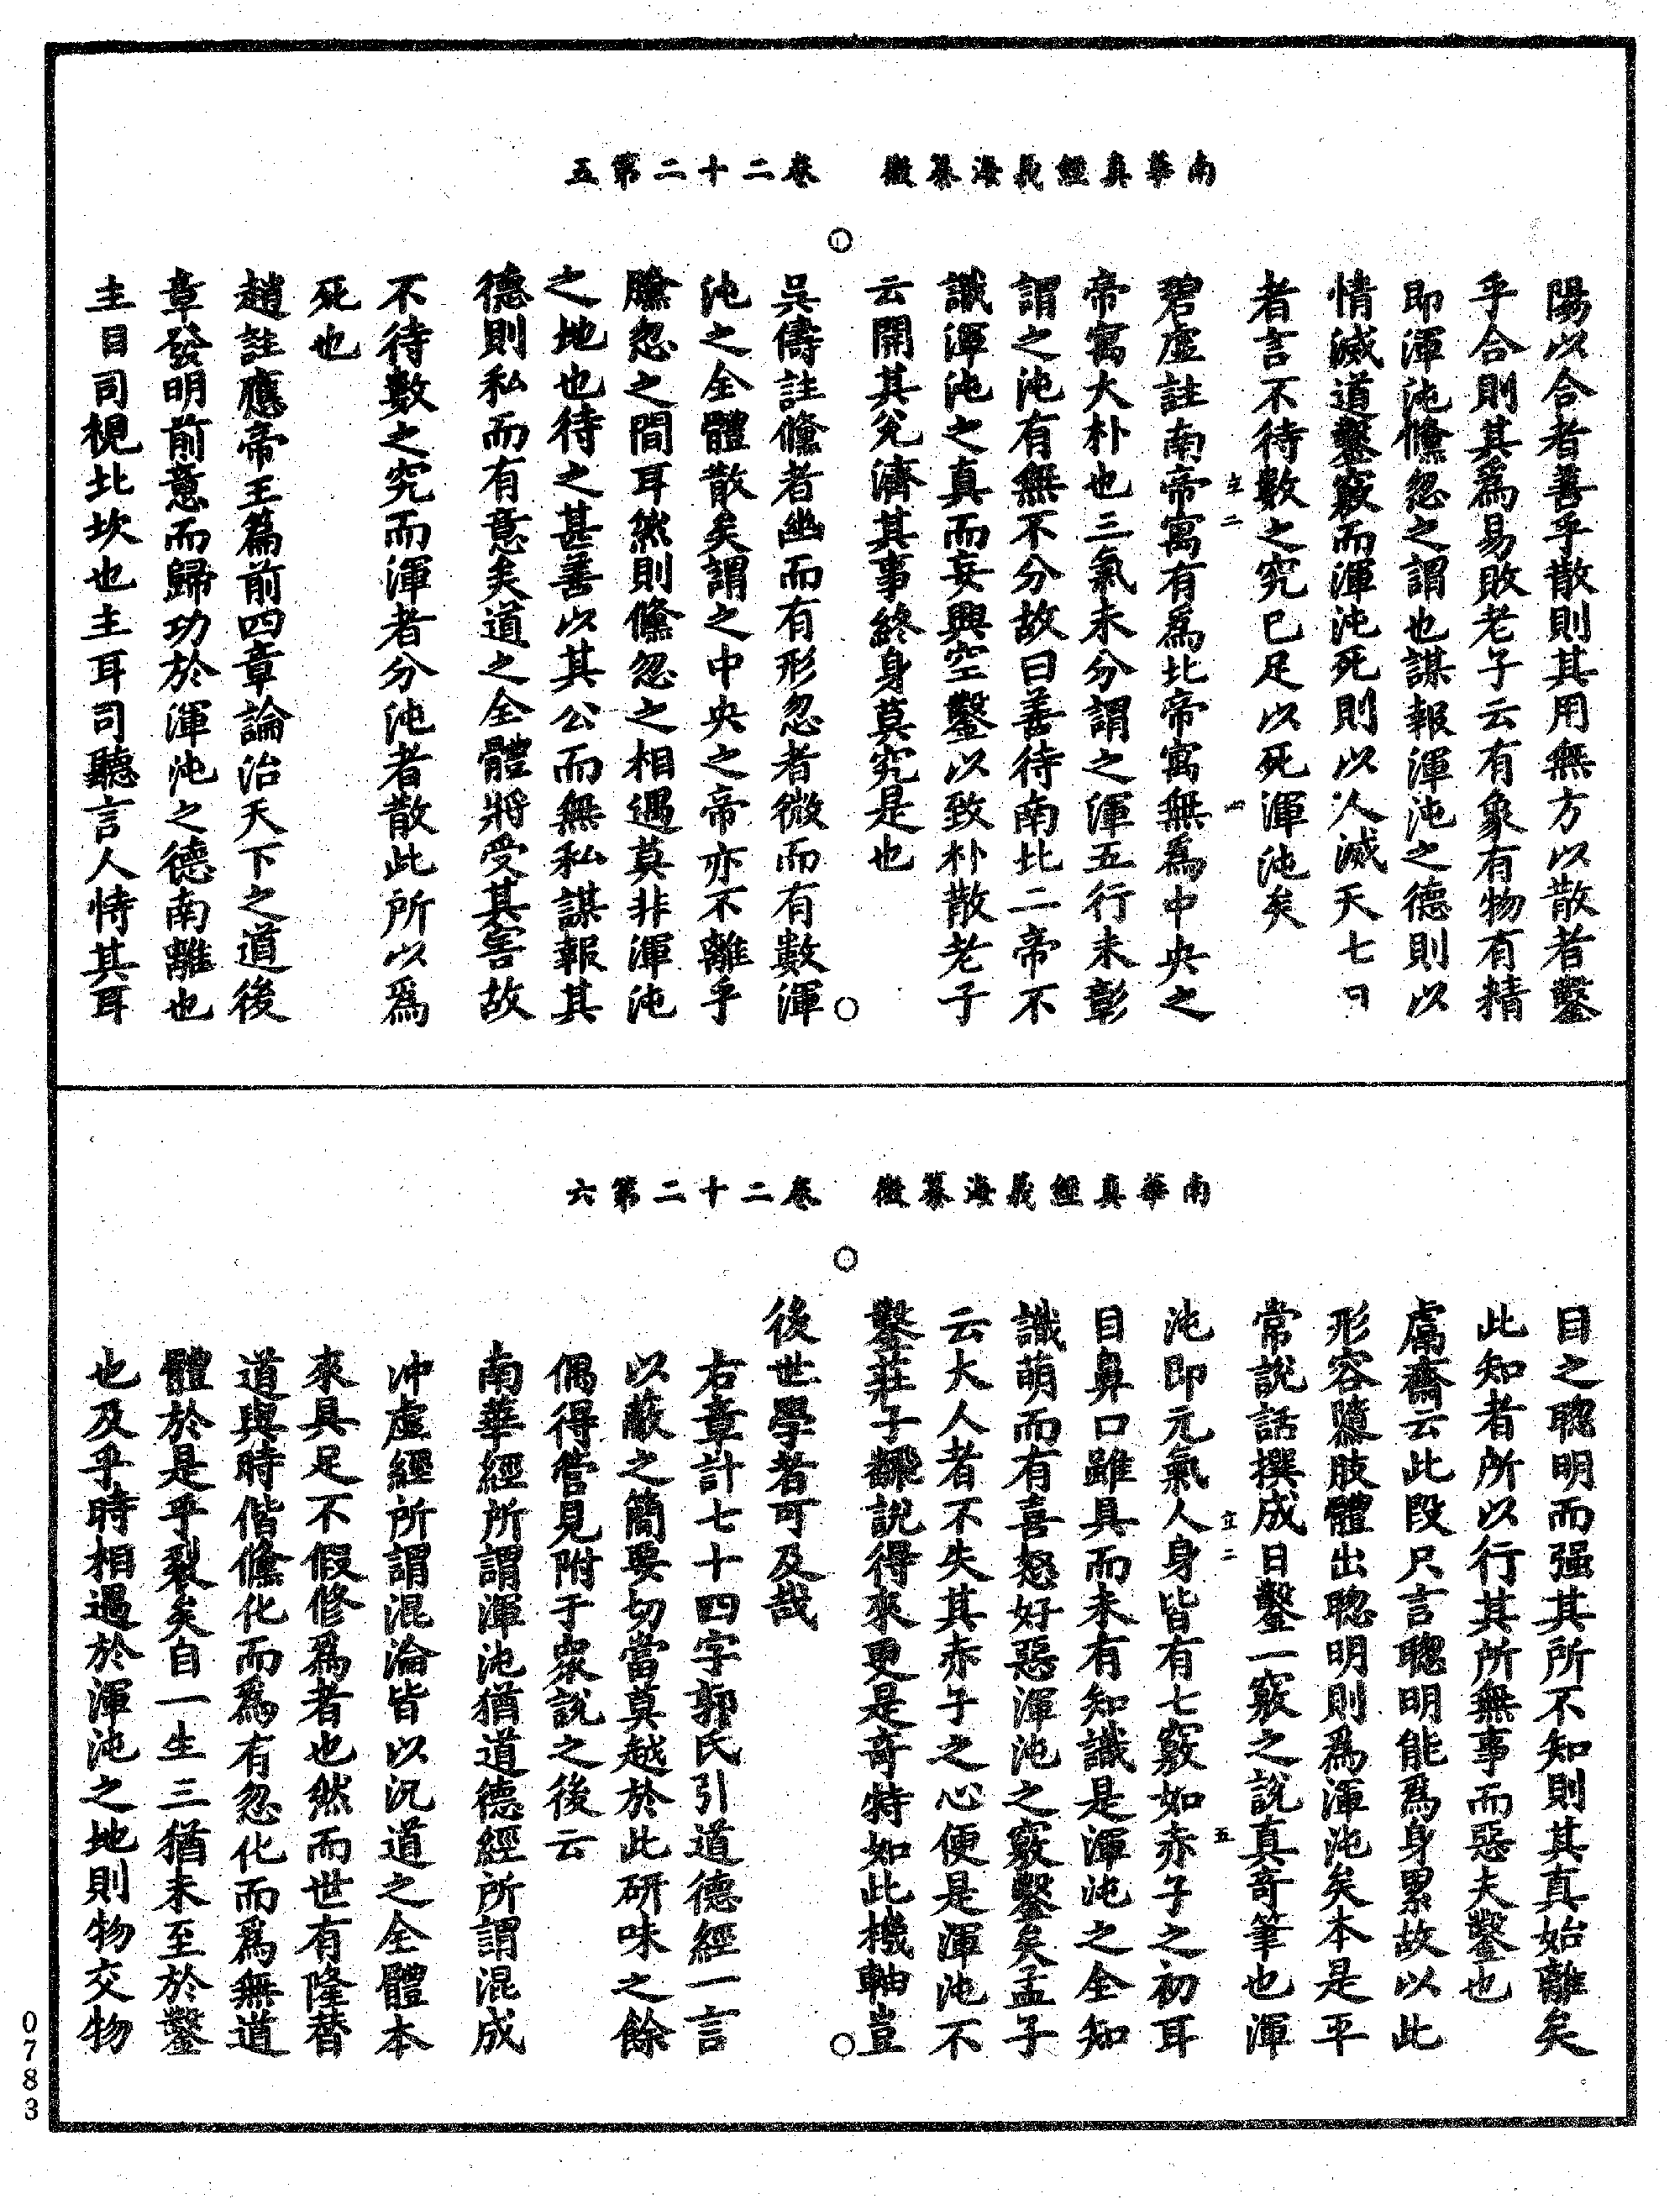 南華真經義海纂微　卷二十二第五
陽以合者善乎散則其用無方以散者鑿
乎合則其爲易敗老子云有象有物有精
即渾沌儵忽之謂也謀報渾沌之德則以
情滅道鑿竅而渾沌死則以人滅天七日
者言不待數之究已足以死渾沌矣
碧虛註南帝寓有爲北帝寓無爲中央之
帝寓大朴也三氣未分謂之渾五行未彰
謂之沌有無不分故曰善待南北二帝不
識渾沌之真而妄興空鑿以致朴散老子
云開其兊濟其事終身莫究是也
吳儔註儵者幽而有形忽者微而有數渾
沌之全體散矣謂之中央之帝亦不離乎
儵忽之間耳然則儵忽之相遇莫非渾沌
之地也待之甚善以其公而無私謀報其
德則私而有意矣道之全體將受其害故
不待數之究而渾者分沌者散此所以爲
死也
趙註應帝王篇前四章論治天下之道後
章發明前意而歸功於渾沌之德南離也
主目司視北坎也主耳司聽言人恃其耳
南華真經義海纂微　卷二十二第六
目之聰明而强其所不知則其真始離矣
此知者所以行其所無事而惡夫鑿也
鬳齋云此段只言聰明能爲身累故以此
形容隳肢體出聰明則爲渾沌矣本是平
常說話撰成日鑿一竅之說真奇筆也渾
沌即元氣人身皆有七竅如赤子之初耳
目鼻口雖具而未有知識是渾沌之全知
識萌而有喜怒好惡渾沌之竅鑿矣孟子
云大人者不失其赤子之心便是渾沌不
鑿莊子翻說得來更是奇特如此機軸豈
後世學者可及哉
右章計七十四字郭氏引道德經一言
以蔽之簡要切當莫越於此研味之餘
偶得管見附于衆說之後云
南華經所謂渾沌猶道德經所謂混成
沖虛經所謂混淪皆以況道之全體本
來具足不假修爲者也然而世有隆替
道與時偕儵化而爲有忽化而爲無道
體於是乎裂矣自一生三猶未至於鑿
也及乎時相遇於渾沌之地則物交物
0783